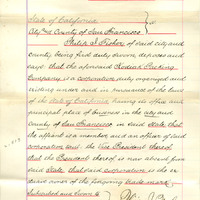 State of California
City and County of San Francisco
Philip I. Fisher of said city and
county being first duly sworn, deposes and
says that the aforesaid Packing
Company is a corporation duly organized and
existing under and in pursuance of the laws
of the State of California having its office and
principal place of business in the city and
county of San Francisco in said State that
the affiant is a member and an officer of said
corporation, the Vice President thereof
that the President thereof is now absent from
said State, that said corporation is the
owner of the foregoing trademark
Subscribed and sworn to